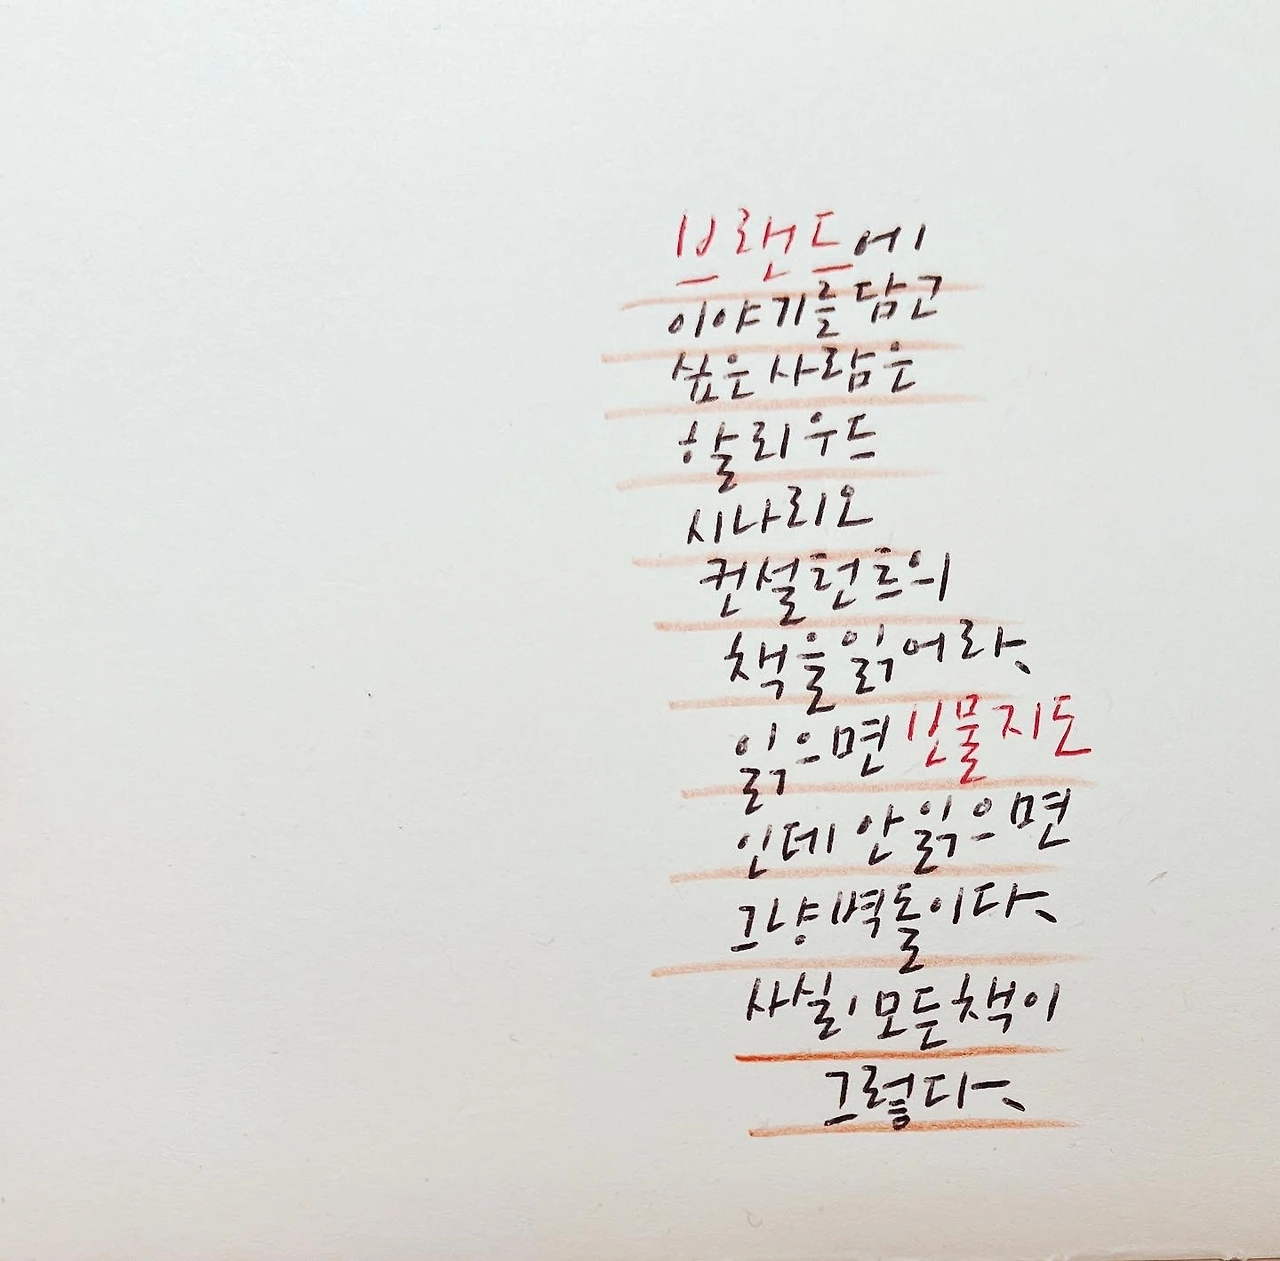 브랜드에
이야기를 담고
싶은 사람은
할리우드
시나리오
컨설턴트의
책을 읽어라.
읽으면 보물지도
인데 안 읽으면
그냥 벽돌이다.
사실, 모든 책이
그렇다.